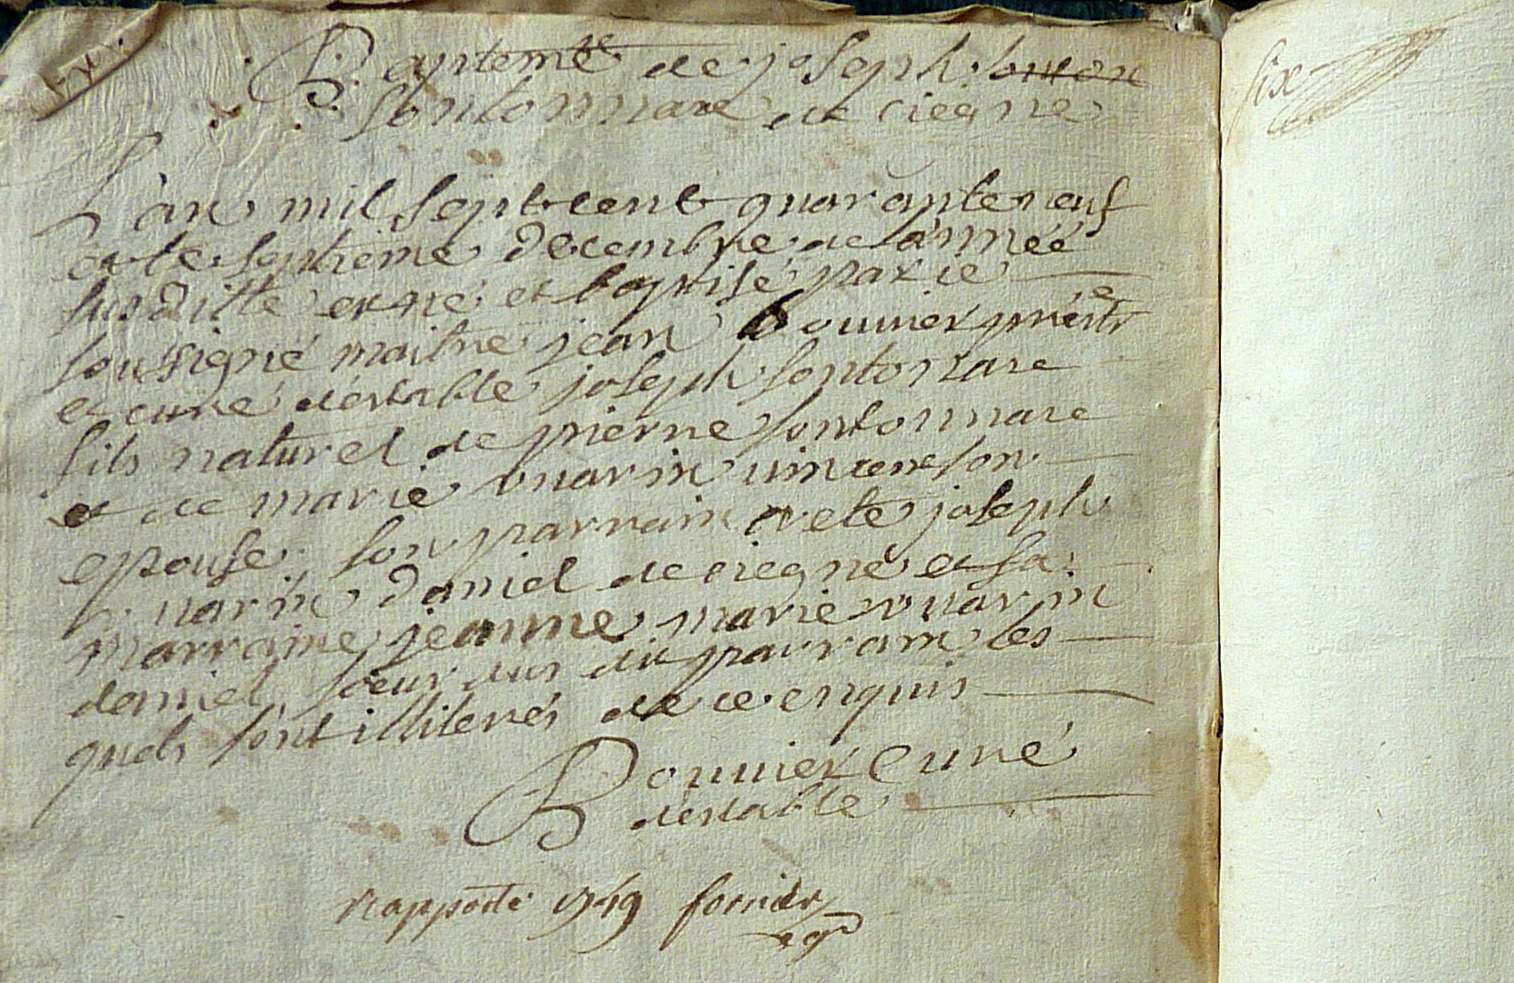 Baptême de joseph
fontonnare de ciegne
L'an mil sept cent quarante neuf
et le septieme decembre de l'année
susditte est né et baptisé par je
soussigné maitre jean Bouvier prêstre
et curé destable joseph fontonnare
fils naturel de pierre fontonnare
et de marie vuarin son
epouse, son parrain a ete joseph
vuarin daniel de ciegne et sa
marraine jeanne marie vuarin
daniel soeur dus dit parrain les
quels sont illiterés de ce enquis
Bouvier Curé
destable
rapporté 1749 fornier
six